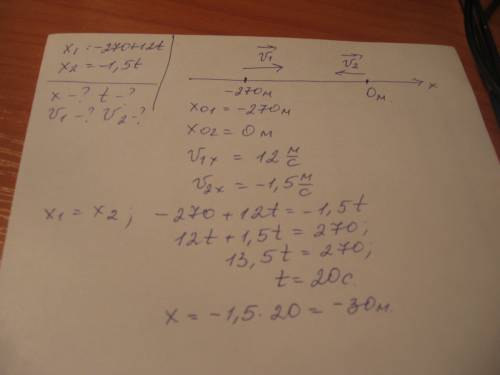 x₁ = -270+12t
x₂ = -1,5t
x - ? t - ?
v₁ - ? v₂ - ?
v₁ v₂
-270м 0м x
x₀₁ = -270м
x₀₂ = 0м
v₁ₓ = 12 м/с
v₂ₓ = -1,5 м/с
x₁ = x₂; -270 + 12t = -1,5t
12t + 1,5t = 270;
13,5t = 270;
t = 20с.
x = -1,5 · 20 = -30м.